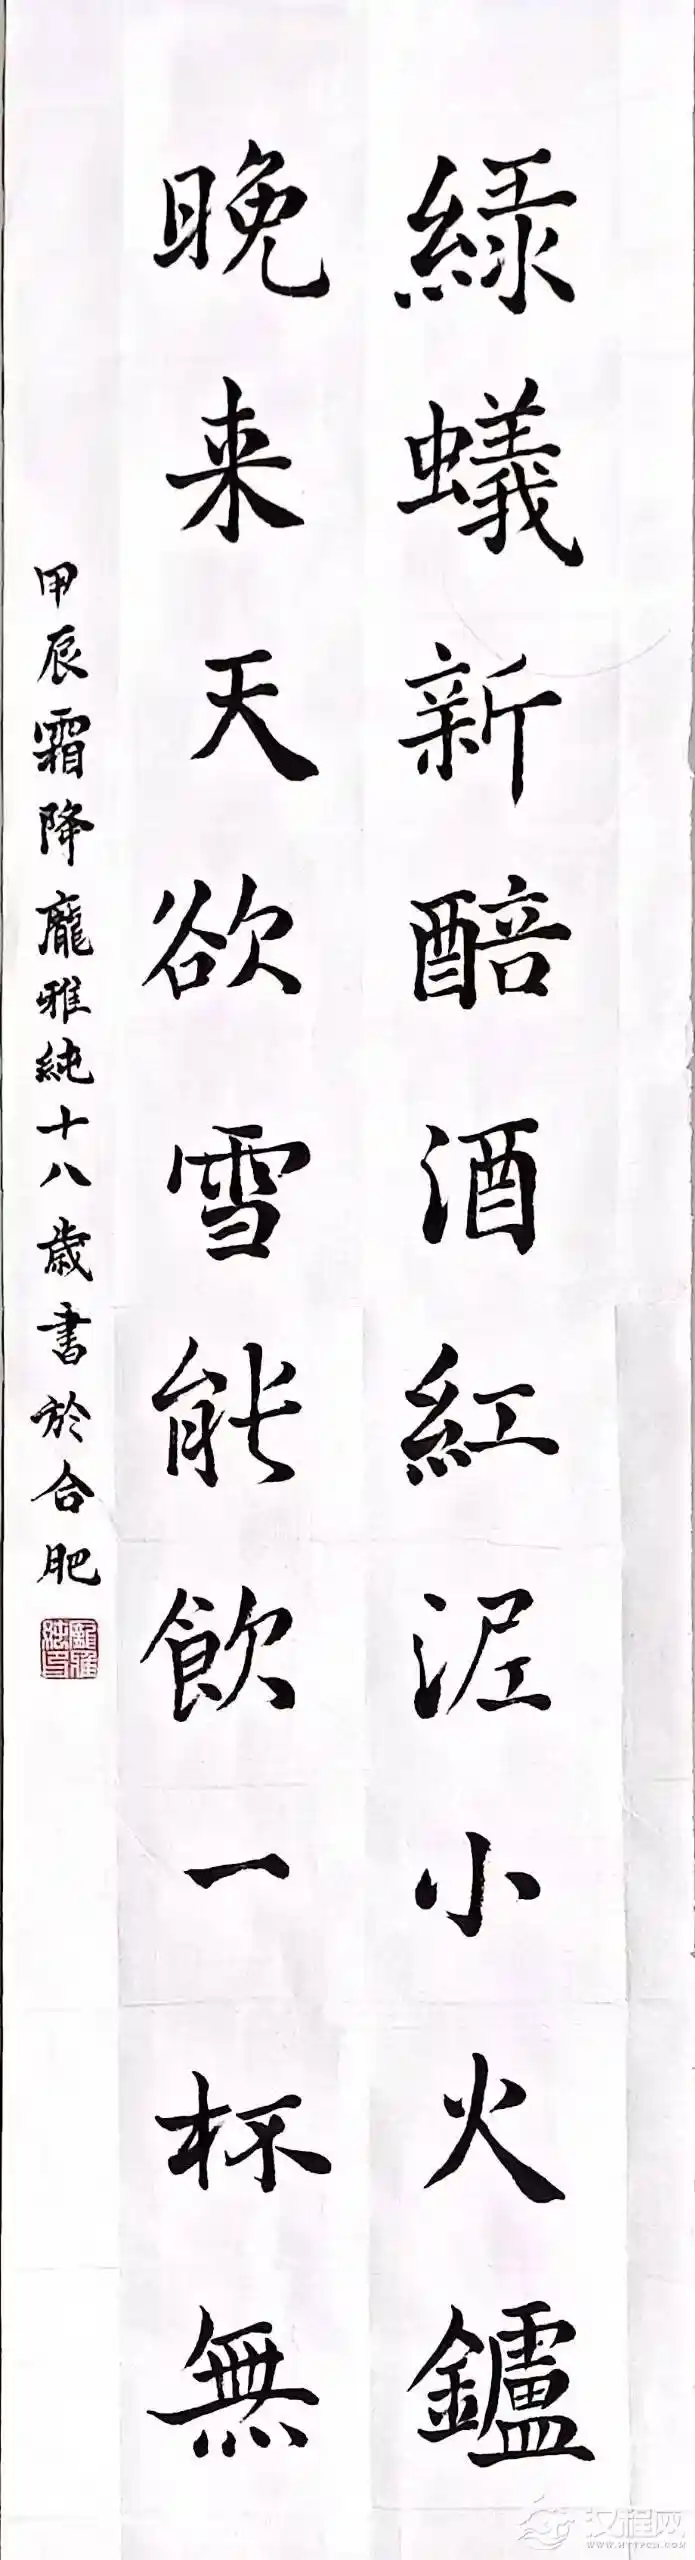 綠蟻新醅酒紅泥小火鑪
晚来天欲雪能飲一杯無
甲辰霜降龐雅純十八歲書於合肥
龐雅純印
汉程网
WWW.HTTPCN.COM